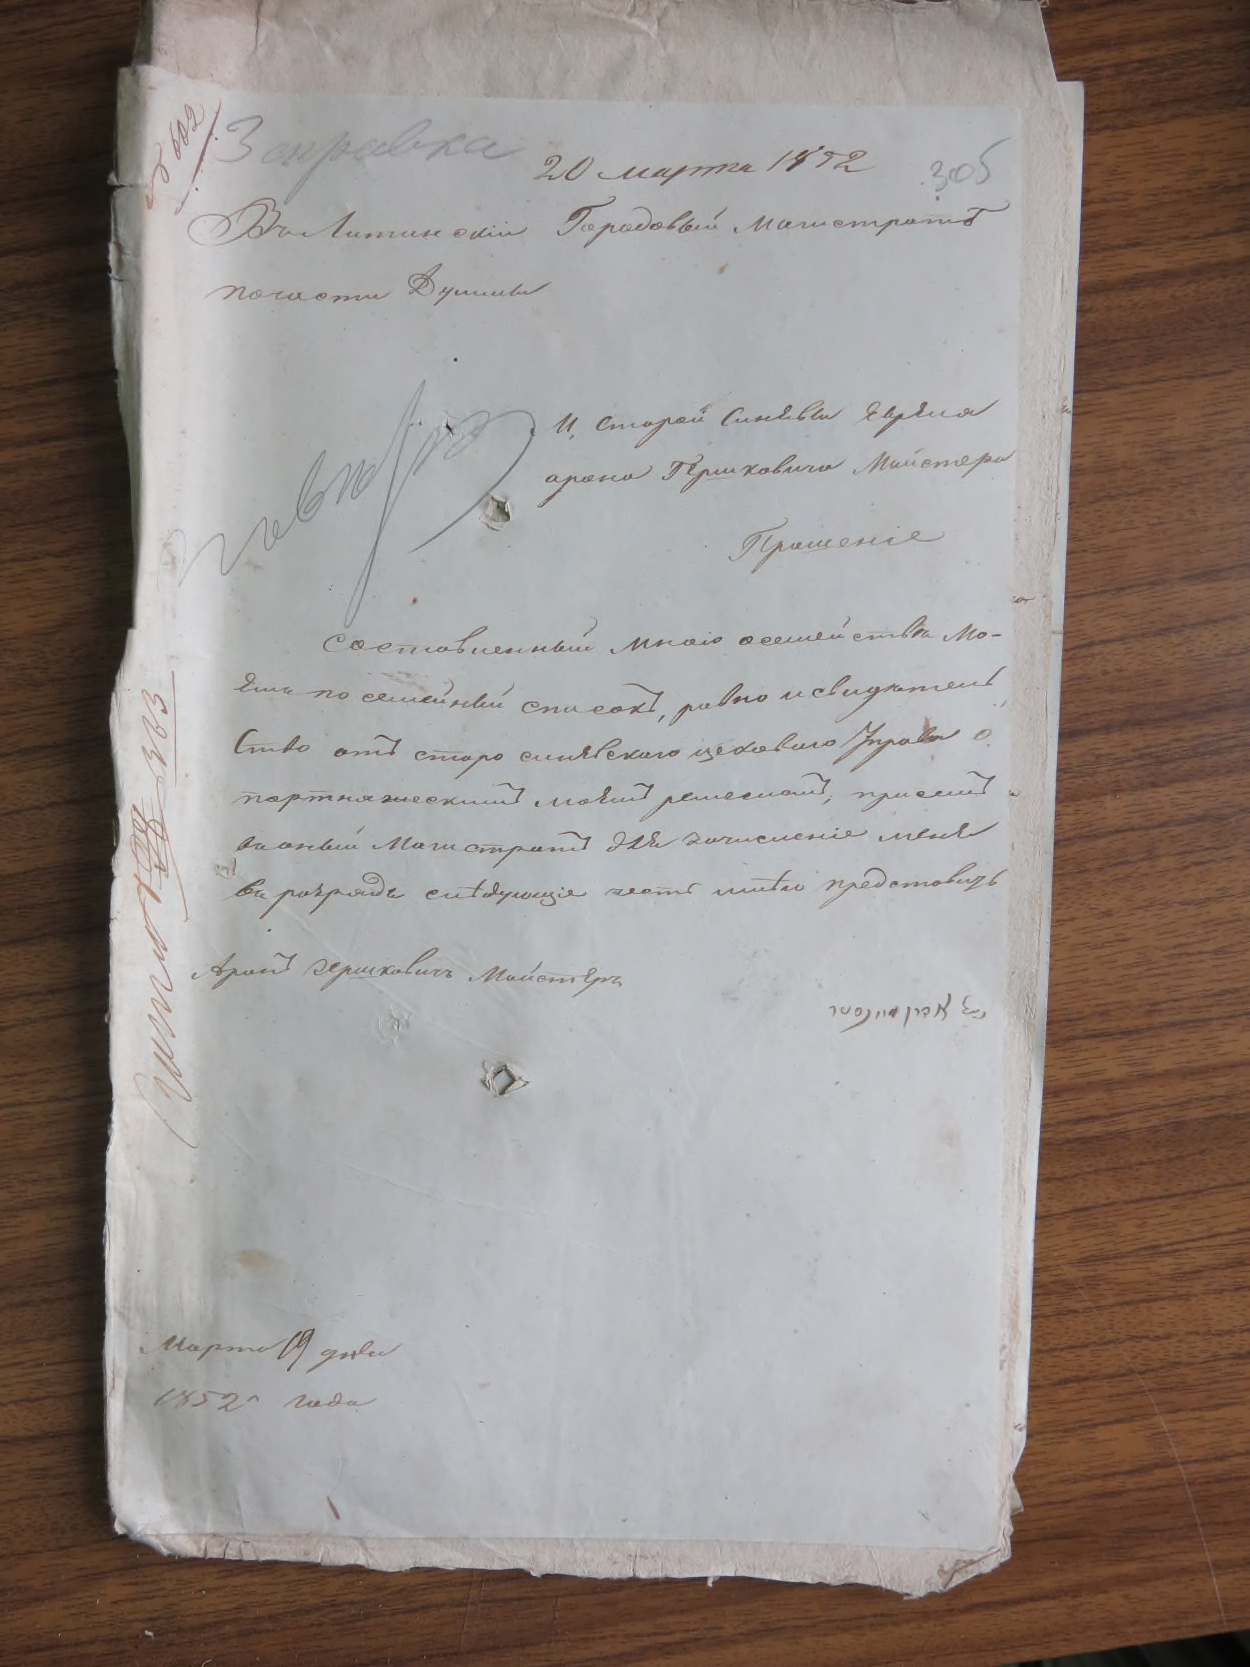 № 602
Справка
20 марта 1852
305
Въ Литинскій Городовый Магистратъ
почасти Думы
М. Старой Синявы Еврея
арона Гершковича Майстера
Прошеніе
Составленный мною осемействе Мо-
емъ посемейный списокъ, равно исвидетель
Ство отъ старо синявского цехового Управы о
портняжескимъ моемъ ремесломъ, присемъ
въ оный Магистратъ для зачисленіе меня
въ розряде слѣдующіе честь имѣю представить
Аронъ Гершковичъ Майстеръ
Марта 19 дня
1852 года